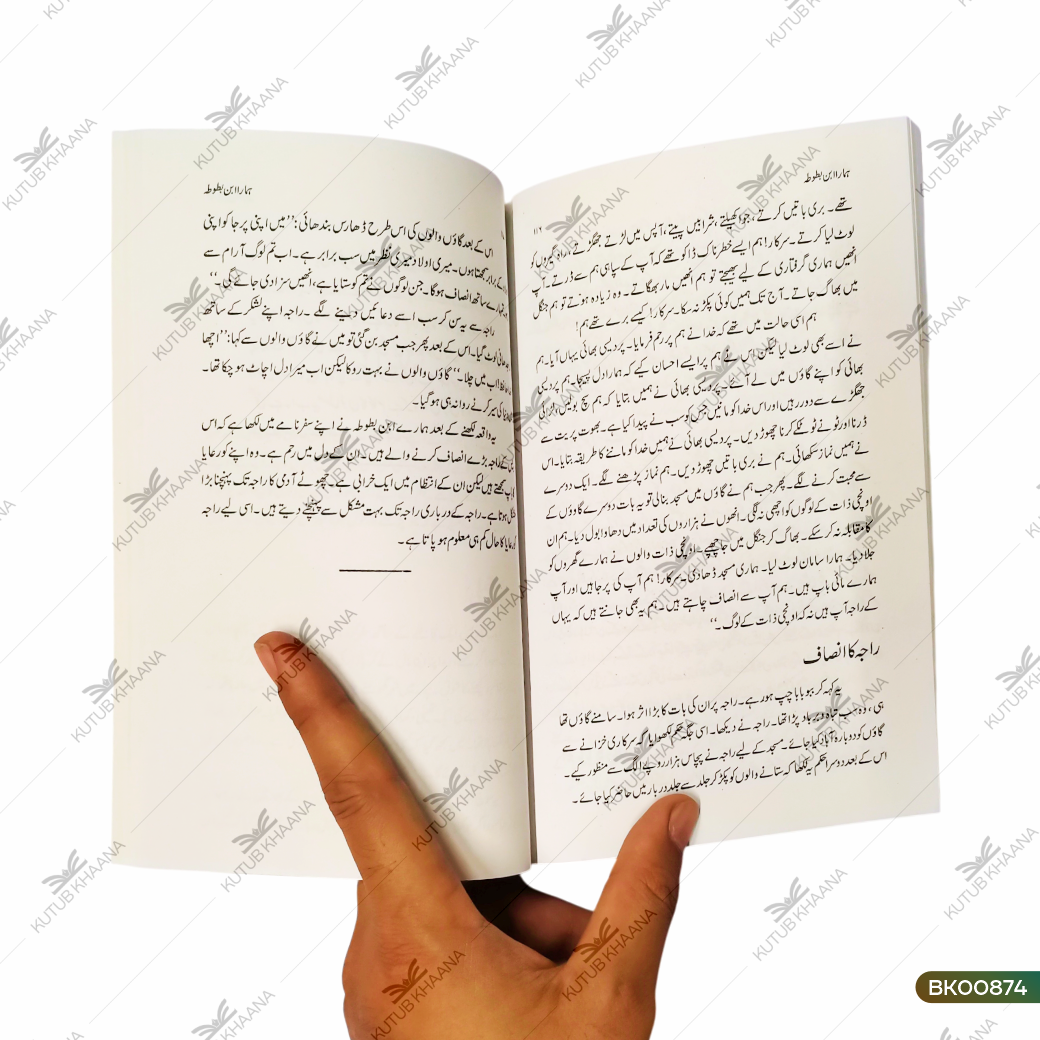 ہمارا ابن بطوطہ
۱۱۶
تھے۔ بری باتیں کرتے، جوا کھیلتے، شرابیں پیتے، آپس میں لڑتے جھگڑتے، راہ گیروں کو
لوٹ لیا کرتے۔ سرکار! ہم ایسے خطرناک ڈاکو تھے کہ آپ کے سپاہی ہم سے ڈرتے۔ آپ
انھیں ہماری گرفتاری کے لیے بھیجتے تو ہم انھیں مار بھگاتے۔ وہ زیادہ ہوتے تو ہم جنگل
میں بھاگ جاتے۔ آج تک ہمیں کوئی پکڑ نہ سکا۔ سرکار! کیسے برے تھے ہم!
ہم اسی حالت میں تھے کہ خدا نے ہم پر رحم فرمایا۔ پردیسی بھائی یہاں آیا۔ ہم
نے اسے بھی لوٹ لیا لیکن اس نے ہم پر ایسے احسان کیے کہ ہمارا دل پسیجا۔ ہم پردیسی
بھائی کو اپنے گاؤں میں لے آئے۔ پردیسی بھائی نے ہمیں بتایا کہ ہم سچ بولیں، لڑائی
جھگڑے سے دور رہیں اور اس خدا کو مانیں جس کو سب نے پیدا کیا ہے۔ بھوت پریت سے
ڈرنا اور ٹونے ٹوٹکے کرنا چھوڑ دیں۔ پردیسی بھائی نے ہمیں خدا کو ماننے کا طریقہ بتایا۔ اس
نے ہمیں نماز سکھائی۔ ہم نے بری باتیں چھوڑ دیں۔ ہم نماز پڑھنے لگے۔ ایک دوسرے
سے محبت کرنے لگے۔ پھر جب ہم نے گاؤں میں مسجد بنائی تو یہ بات دوسرے گاؤوں کے
اونچی ذات کے لوگوں کو اچھی نہ لگی۔ انھوں نے ہزاروں کی تعداد میں دھاوا بول دیا۔ ہم ان
کا مقابلہ نہ کر سکے۔ بھاگ کر جنگل میں جا چھپے۔ اونچی ذات والوں نے ہمارے گھروں کو
جلا دیا۔ ہمارا سامان لوٹ لیا۔ ہماری مسجد ڈھادی۔ سرکار! ہم آپ کی پرجا ہیں اور آپ
ہمارے مائی باپ ہیں۔ ہم آپ سے انصاف چاہتے ہیں۔ ہم یہ بھی جانتے ہیں کہ یہاں
کے راجہ آپ ہیں نہ کہ اونچی ذات کے لوگ۔‘‘
راجہ کا انصاف
یہ کہہ کر ببو بابا چپ ہو رہے۔ راجہ پر ان کی بات کا بڑا اثر ہوا۔ سامنے گاؤں تھا
ہی، وہ سب تباہ و برباد پڑا تھا۔ راجہ نے دیکھا۔ اسی جگہ حکم لکھوایا کہ سرکاری خزانے سے
گاؤں کو دوبارہ آباد کیا جائے۔ مسجد کے لیے راجہ نے پچاس ہزار روپے الگ سے منظور کیے۔
اس کے بعد دوسرا حکم یہ لکھا کہ ستانے والوں کو پکڑ کر جلد سے جلد دربار میں حاضر کیا جائے۔
ہمارا ابن بطوطہ
اس کے بعد گاؤں والوں کی اس طرح ڈھارس بندھائی: ’’میں اپنی پرجا کو اپنی
کے برابر سمجھتا ہوں۔ میری اولاد میری نظر میں سب برابر ہے۔ اب تم لوگ آرام سے
تمہارے ساتھ انصاف ہوگا۔ جن لوگوں نے تم کو ستایا ہے، انھیں سزا دی جائے گی۔‘‘
راجہ سے یہ سن کر سب اسے دعائیں دینے لگے۔ راجہ اپنے لشکر کے ساتھ
لوٹ گیا۔ اس کے بعد پھر جب مسجد بن گئی تو میں نے گاؤں والوں سے کہا: ’’اچھا
اب میں چلا۔‘‘ گاؤں والوں نے بہت روکا لیکن اب میرا دل اچاٹ ہو چکا تھا۔
کی سیر کرنے روانہ ہی ہو گیا۔
یہ واقعہ لکھنے کے بعد ہمارے ابن بطوطہ نے اپنے سفرنامے میں لکھا ہے کہ اس
کے راجہ بڑے انصاف کرنے والے ہیں۔ ان کے دل میں رحم ہے۔ وہ اپنے کو رعایا
باپ سمجھتے ہیں لیکن ان کے انتظام میں ایک خرابی ہے۔ چھوٹے آدمی کا راجہ تک پہنچنا بڑا
ہوتا ہے۔ راجہ کے درباری راجہ تک بہت مشکل سے پہنچنے دیتے ہیں۔ اسی لیے راجہ
کو رعایا کا حال کم ہی معلوم ہو پاتا ہے۔
KUTUB KHAANA
BK00874